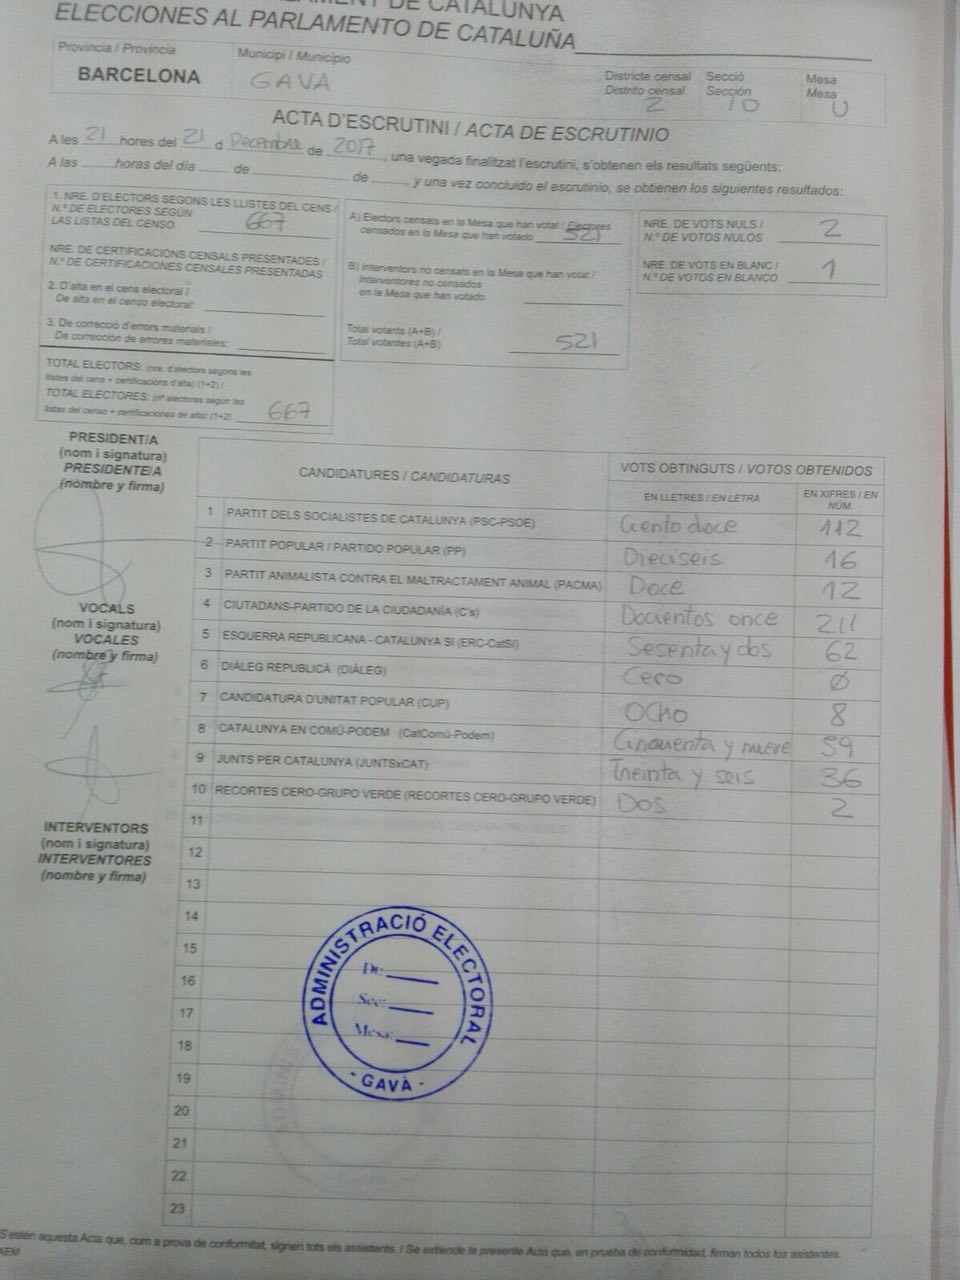 PARLAMENT DE CATALUNYA
ELECCIONES AL PARLAMENTO DE CATALUÑA
Província / Provincia
BARCELONA
Municipi / Municipio
GAVA
Districte censal
Distrito censal
2
Secció
Sección
10
Mesa
Mesa
U
ACTA D'ESCRUTINI / ACTA DE ESCRUTINIO
A les 21 hores del 21 d Decembre de 2017, una vegada finalitzat l'escrutini, s'obtenen els resultats següents:
A las ........ horas del día ........ de ........................ de ........, y una vez concluido el escrutinio, se obtienen los siguientes resultados:
1. NRE. D'ELECTORS SEGONS LES LLISTES DEL CENS /
N.º DE ELECTORES SEGÚN
LAS LISTAS DEL CENSO 667
NRE. DE CERTIFICACIONS CENSALS PRESENTADES /
N.º DE CERTIFICACIONES CENSALES PRESENTADAS
2. D'alta en el cens electoral /
De alta en el censo electoral:
3. De correcció d'errors materials /
De corrección de errores materiales:
TOTAL ELECTORS: (nre. d'electors segons les
llistes del cens + certificacions d'alta) (1+2) /
TOTAL ELECTORES: (nº electores según las
listas del censo + certificaciones de alta) (1+2) 667
A) Electors censats en la Mesa que han votat / Electores
censados en la Mesa que han votado 521
B) Interventors no censats en la Mesa que han votat /
Interventores no censados
en la Mesa que han votado
Total votants (A+B) /
Total votantes (A+B) 521
NRE. DE VOTS NULS /
N.º DE VOTOS NULOS 2
NRE. DE VOTS EN BLANC /
N.º DE VOTOS EN BLANCO 1
PRESIDENT/A
(nom i signatura)
PRESIDENTE/A
(nombre y firma)
VOCALS
(nom i signatura)
VOCALES
(nombre y firma)
INTERVENTORS
(nom i signatura)
INTERVENTORES
(nombre y firma)
CANDIDATURES / CANDIDATURAS
VOTS OBTINGUTS / VOTOS OBTENIDOS
EN LLETRES / EN LETRA
EN XIFRES / EN NÚM.
1 PARTIT DELS SOCIALISTES DE CATALUNYA (PSC-PSOE) Ciento doce 112
2 PARTIT POPULAR / PARTIDO POPULAR (PP) Dieciseis 16
3 PARTIT ANIMALISTA CONTRA EL MALTRACTAMENT ANIMAL (PACMA) Doce 12
4 CIUTADANS-PARTIDO DE LA CIUDADANÍA (C's) Docientos once 211
5 ESQUERRA REPUBLICANA - CATALUNYA SÍ (ERC-CatSí) Sesenta y dos 62
6 DIÀLEG REPUBLICÀ (DIÀLEG) Cero Ø
7 CANDIDATURA D'UNITAT POPULAR (CUP) Ocho 8
8 CATALUNYA EN COMÚ-PODEM (CatComú-Podem) Cincuenta y nueve 59
9 JUNTS PER CATALUNYA (JUNTSxCAT) Treinta y seis 36
10 RECORTES CERO-GRUPO VERDE (RECORTES CERO-GRUPO VERDE) Dos 2
11
12
13
14
15
16
17
18
19
20
21
22
23
ADMINISTRACIÓ ELECTORAL
Dte.
Sec.
Mesa
- GAVÀ -
S'estén aquesta Acta que, com a prova de conformitat, signen tots els assistents. / Se extiende la presente Acta que, en prueba de conformidad, firman todos los asistentes.